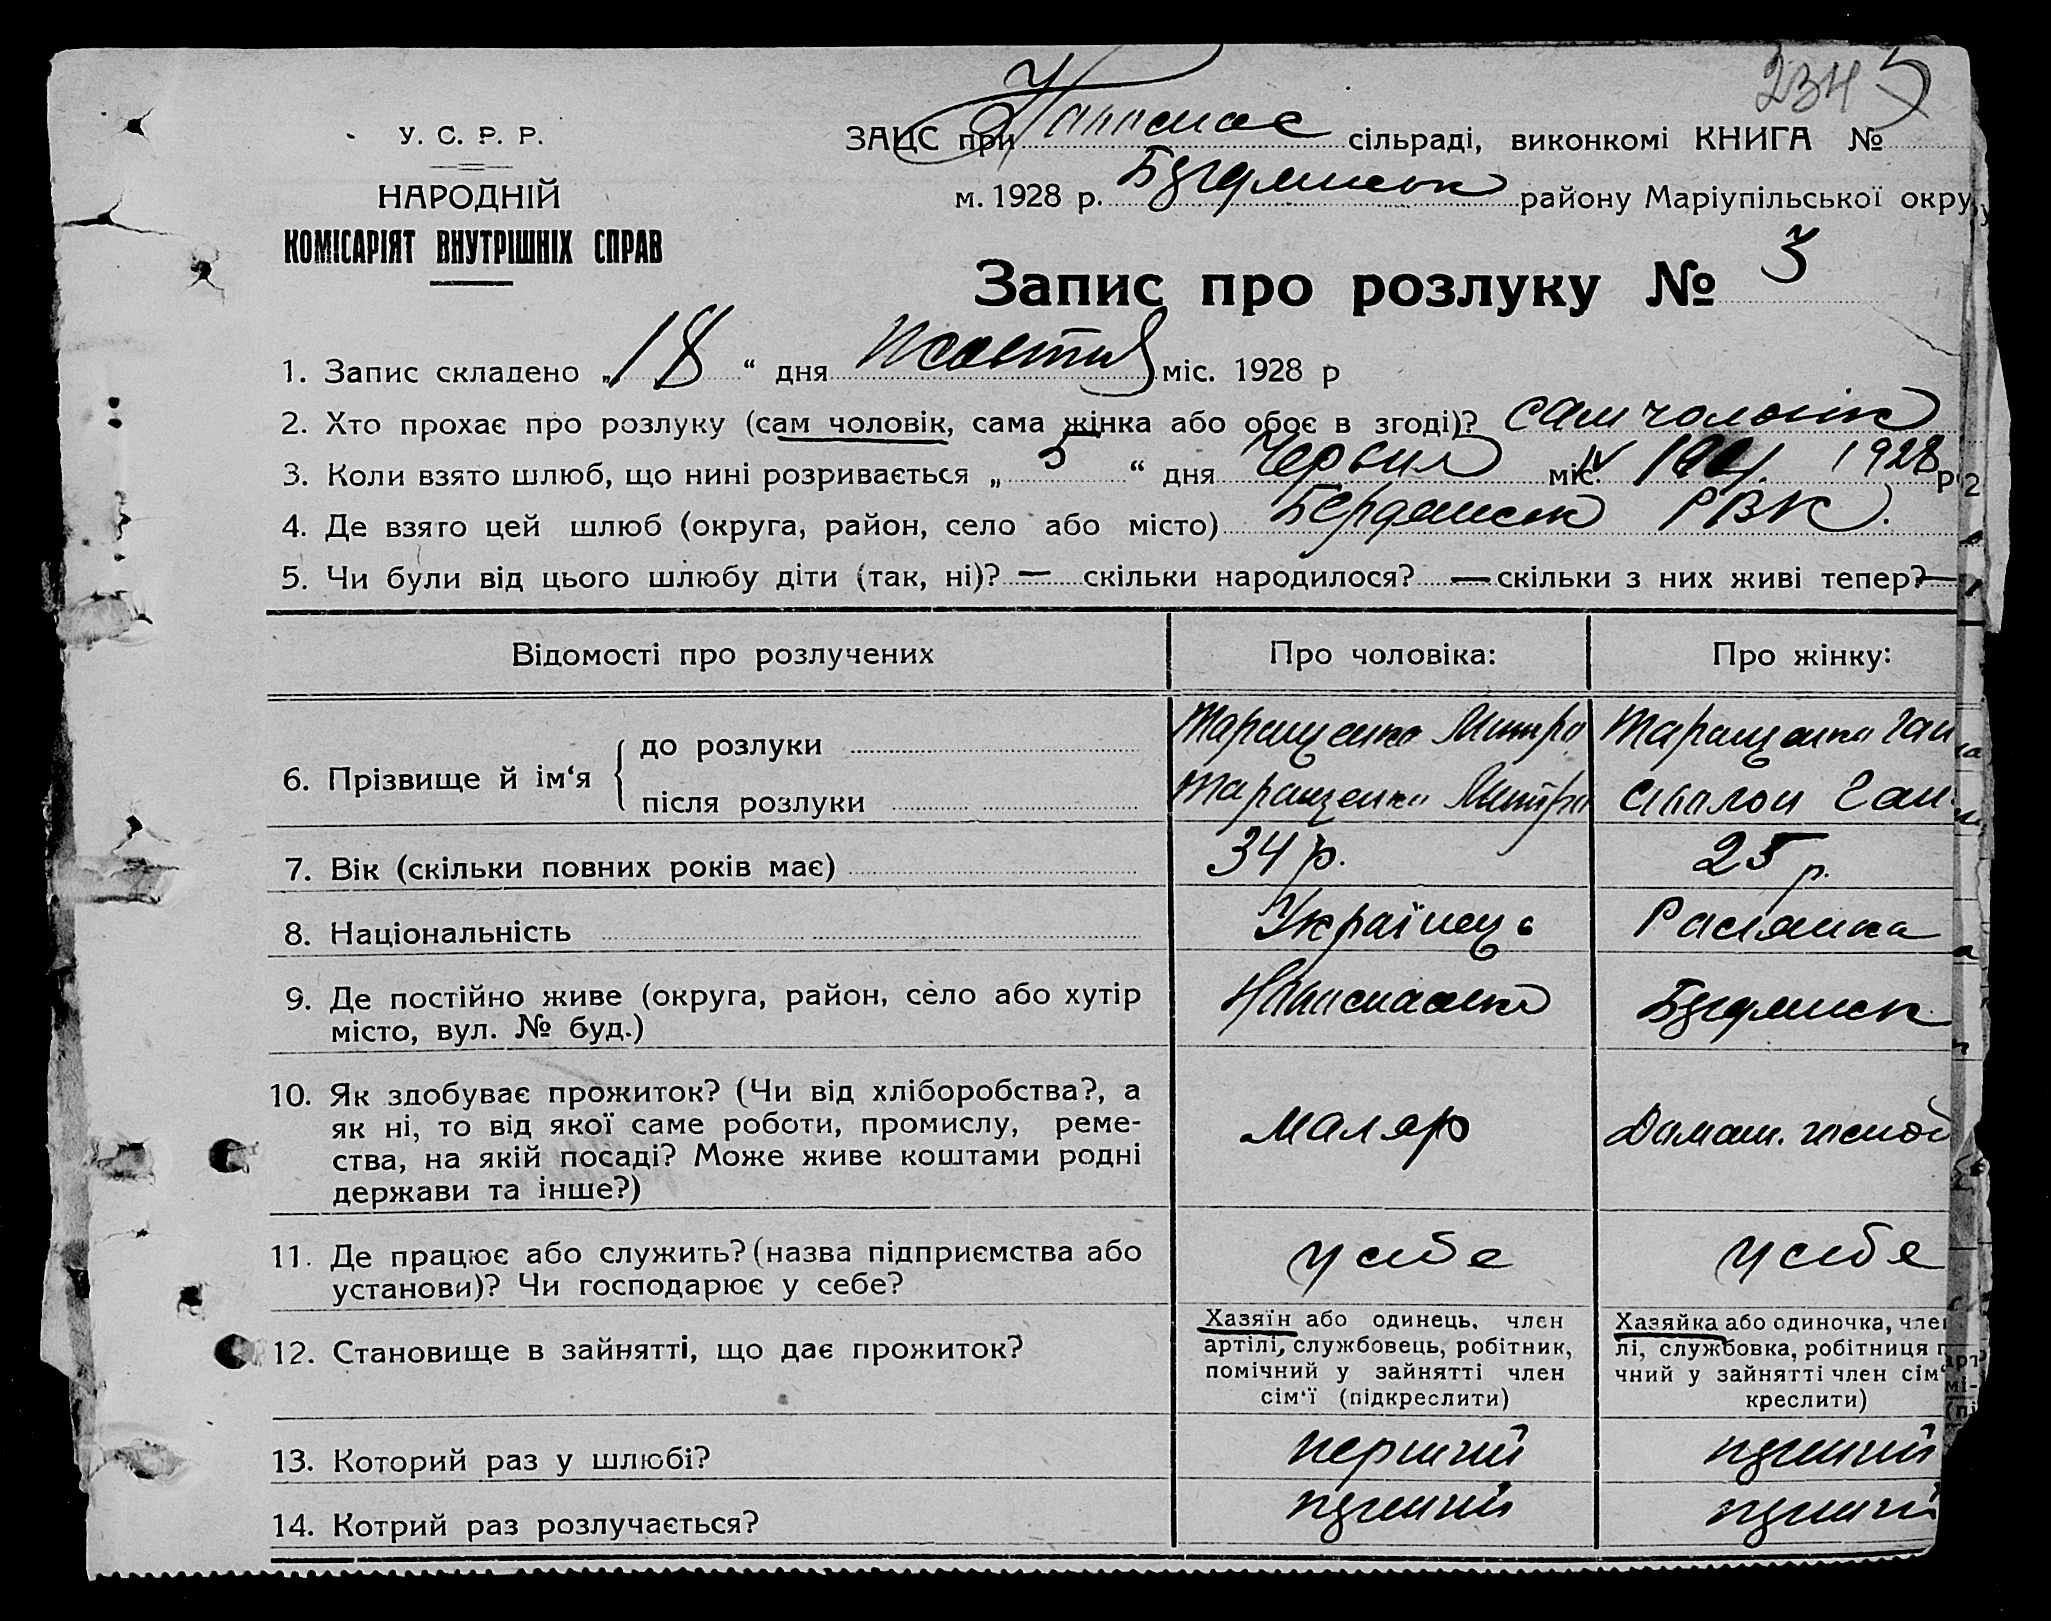 2345
У. С. Р. Р.
ЗАЦС при сільраді, виконкомі КНИГА №
НАРОДНІЙ
м. 1928 р. району Маріупільської окру
КОМІСАРІЯТ ВНУТРІШНІХ СПРАВ
Запис про розлуку № 3
1. Запис складено „18“ дня Жовтня міс. 1928 р
2. Хто прохає про розлуку (сам чоловік, сама жінка або обоє в згоді)? сам чоловік
3. Коли взято шлюб, що нині розривається „5“ дня Червня міс. 1928 р
4. Де взято цей шлюб (округа, район, село або місто) Бердянськ РВК.
5. Чи були від цього шлюбу діти (так, ні)? — скільки народилося? — скільки з них живі тепер? —
Відомості про розлучених Про чоловіка: Про жінку:
6. Прізвище й ім‘я
до розлуки Таращенко Митро Таращенко Ган
після розлуки Таращенко Митро Ган
7. Вік (скільки повних років має) 34 р. 25 р.
8. Національність Українець Расіянка
9. Де постійно живе (округа, район, село або хутір
місто, вул. № буд.)
10. Як здобуває прожиток? (Чи від хліборобства?, а
як ні, то від якої саме роботи, промислу, реме-
ства, на якій посаді? Може живе коштами родні
держави та інше?)
маляр Домаш. господ
11. Де працює або служить? (назва підприємства або
установи)? Чи господарює у себе?
у себе у себя
12. Становище в зайнятті, що дає прожиток?
Хазяїн або одинець, член
артілі, службовець, робітник,
помічний у зайнятті член
сім‘ї (підкреслити)
Хазяйка або одиночка, член
лі, службовка, робітниця п
чний у зайнятті член сім‘
креслити)
13. Которий раз у шлюбі? перший перший
14. Котрий раз розлучається? перший перший